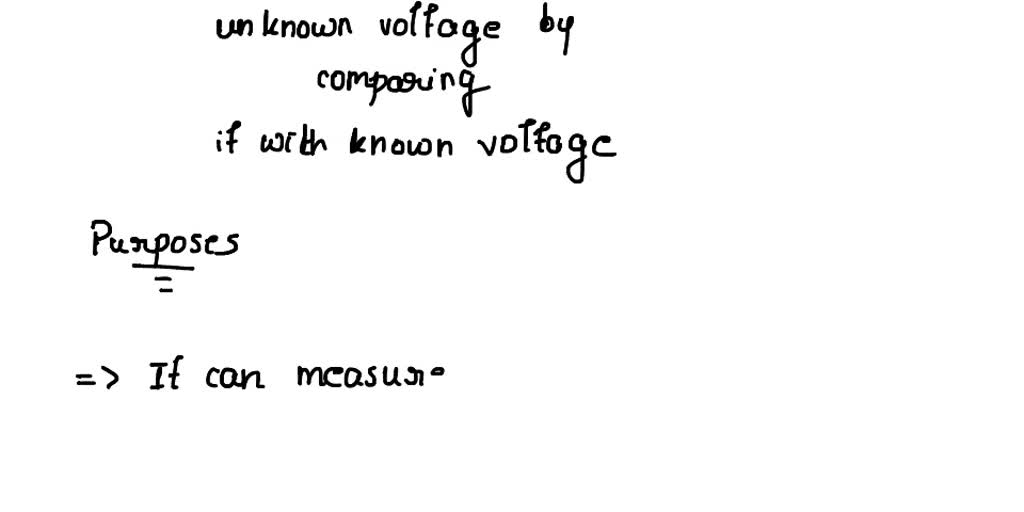 unknown voltage by
comparing
it with known voltage
Purposes
=> It can measure